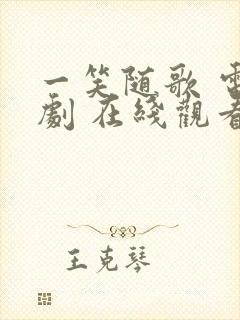 一笑随歌 電
劇 在綫觀看
王克琴